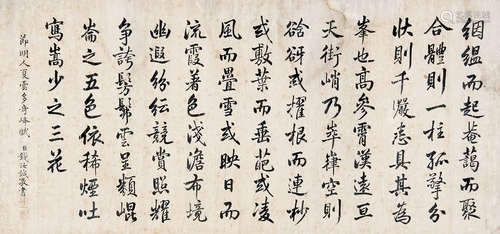 絪縕而起菴藹而聚
合體則一柱孤擎分
狀則千巖悉具其為
峯也高參霄漢遠亘
天街峭乃崒嵂空則
谽谺或擢根而連杪
或敷葉而垂葩或凌
風而疊雪或映日而
流霞著色淺澹布境
幽遐紛紜競賞照耀
爭誇髣髴雲呈類崐
崙之五色依稀煙吐
寫嵩少之三花
節明人夏雲多奇峰賦 錢汝誠敬書